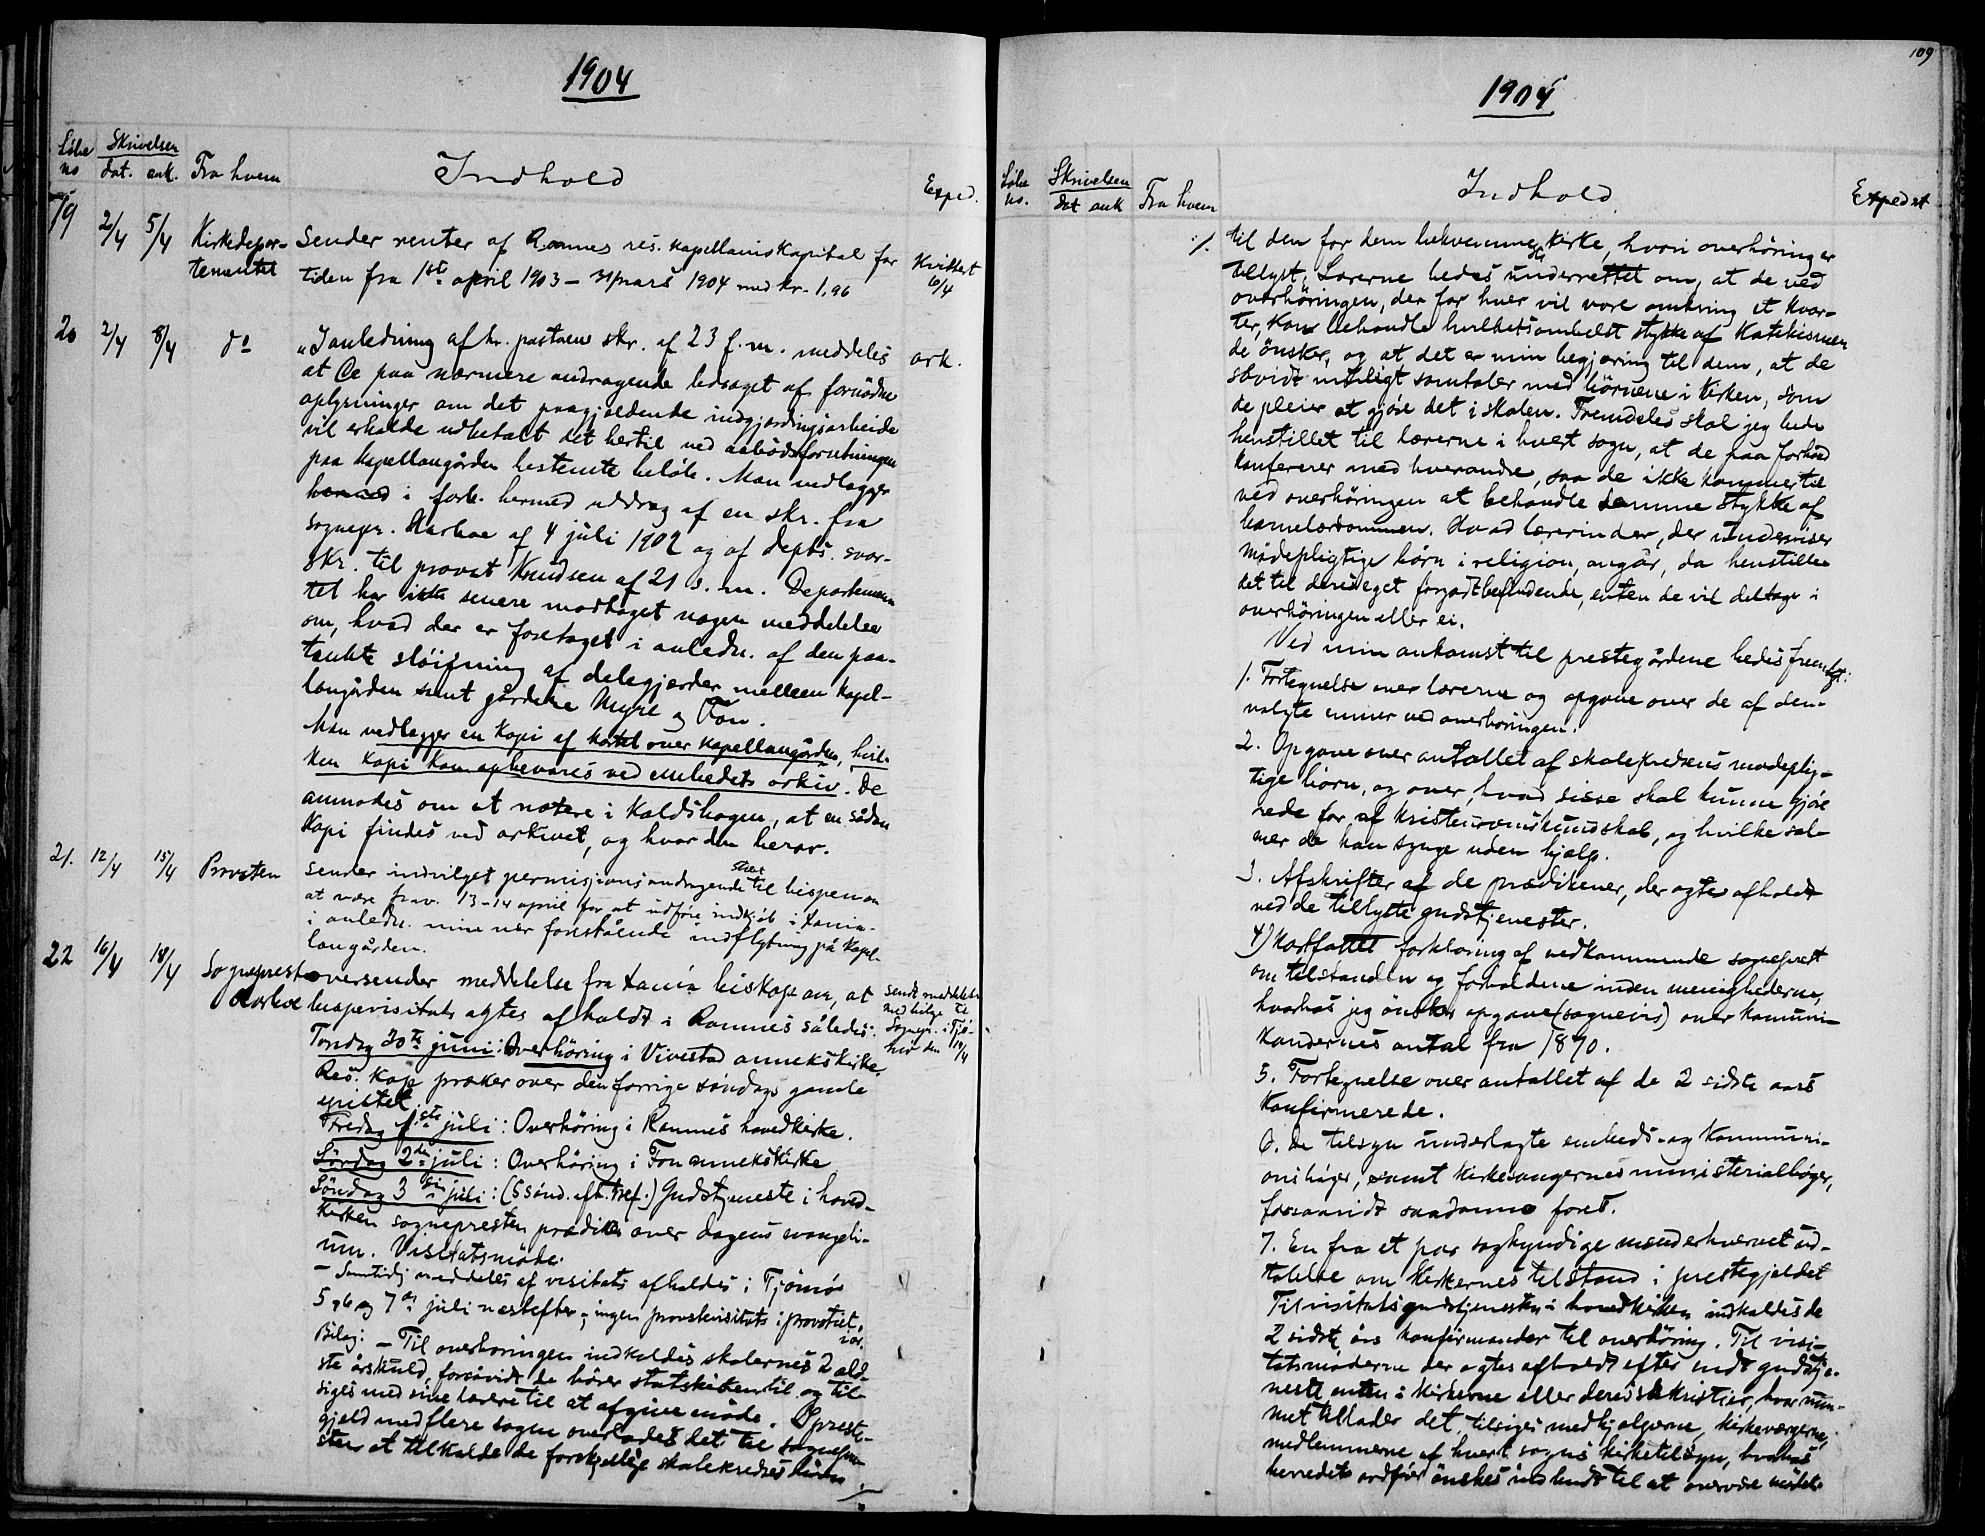 1904
Löbe no Skrivelsen dat. ank. Fra hvem Indhold Exped.
19 2/4 5/4 Kirkedepar- Sender renter af Ramnes res. kapellaniskapital for Kvittert
tementet tiden fra 1ste april 1903 – 31 mars 1904 med kr. 1,96 6/4
20 2/4 8/4 do „I anledning af hr. pastorens skr. af 23 f. m. meddeles ark.
at De paa nærmere andragende ledsaget af fornödne
oplysninger om det paagjældende indgjerdingsarbeide
vil erholde udbetalt det hertil ved aabodsforretningen
paa kapellangården bestemte belöb. Man vedlægger
hermed i forb. hermed uddrag af en skr. fra
sognepr. Aarhoe af 4 juli 1902 og af Depts. svar-
skr. til provst Knudsen af 21 s. m. Departemen-
tet har ikke senere modtaget nogen meddelelse
om, hvad der er foretaget i anledn. af den paa-
tænkte slöifning af delegjærder mellem kapel-
langården samt gårdene Myre og Fon.
Man vedlægger en kopi af kartet over kapellangården, hvil-
ken kopi kan opbevares ved embedets arkiv. De
anmodes om at notere i kaldsbogen, at en sådan
kopi findes ved arkivet, og hvor den beror.
21. 12/4 15/4 Provsten Sender indvilget permisjonsandragende til bispen om
at være frav. 13–14 april for at udföre indkjöb i
i anledn. min nær forestående indflytning på kapel-
langården.
22 16/4 18/4 Sogneprest oversender meddelelse fra biskop om, at sendt meddelelse
Aarhoe bispevisitats agtes afholdt i Ramnes således: med bilag til
Torsdag 30te juni: Overhöring i Vivestad annekskirke. Sognepr. i Tjö-
Res. kap. præker over den forrige söndags gamle mö den 19/4
epistel.
Fredag 1ste juli: Overhöring i Ramnes hovedkirke.
Lördag 2den juli: Overhöring i Fon annekskirke
Söndag 3die juli: (5 sönd. eft. Tref.) Gudstjeneste i hoved-
kirken sognepresten prædiker over dagens evangeli-
um. Visitatsmöde.
– Samtidig meddeles af visitats afholdes i Tjömö
5, 6 og 7de juli næstefter; ingen provstevisitats i provstiet
iår.
Bilag: – Til overhöringen indkaldes skolernes 2 æld-
ste årskuld, forsåvidt de hörer statskirken til og til-
siges med sine lærere til at afgive möde. I preste-
gjeld med flere sogne overlades det til sognepre-
sten at tilkalde de forskjellige skolekredses börn
./.
109
1904
Löbe no. Skrivelsen dat ank Fra hvem Indhold Expedert
./. til den for dem bekvemme kirke, hvori overhöring er
tillyst. Lærerne bedes underrettet om, at de ved
overhöringen, der for hver vil vare omkring et kvar-
ter, kan behandle hvilketsomhelst stykke af katekismen
de önsker, og at det er min begjæring til dem, at de
såvidt muligt samtaler med börnene i kirken, som
de pleier at gjöre det i skolen. Fremdeles skal jeg bede
henstillet til lærerne i hvert sogn, at de paa forhånd
konfererer med hverandre, saa de ikke kommer til
ved overhöringen at behandle samme stykke af
barnelærdommen. Hvad lærerinder, der underviser
mödepligtige börn i religion, angår, da henstilles
det til deres eget forgodtbefindende, enten de vil deltage i
overhöringen eller ei.
Ved min ankomst til prestegårdene bedes fremlagt:
1. Fortegnelse over lærerne og opgave over de af dem
valgte emner ved overhöringen.
2. Opgave over antallet af skolekredsens mödeplig-
tige börn, og over, hvad disse skal kunne gjöre
rede for af kristendomskundskab, og hvilke sal-
mer de kan synge uden hjælp.
3. Afskrifter af de prædikener, der agtes afholdt
ved de tillyste gudstjenester.
4) Kortfattet forklaring af vedkommende sogneprest
om tilstanden og forholdene inden menighederne,
hvorhos jeg önsker opgave (sognevis) over kommuni-
kandernes antal fra 1890.
5. Fortegnelse over antallet af de 2 sidste aars
konfirmerede.
6. De tilsyn underlagte embeds- og kommuni-
onsböger, samt kirkesangernes ministerialböger,
forsaavidt saadanne föres.
7. En fra et par sagkyndige mænd erhvervet ud-
talelse om kirkernes tilstand i prestegjeldet
Til visitatsgudstjenesten i hovedkirken indkaldes de
2 sidste års konfirmander til overhöring. Til visi-
tatsmöderne der agtes afholdt efter endt gudstje-
neste enten i kirkerne eller deres sakristier, hvor rum-
met tillader det, tilsiges medhjælperne, kirkeværgerne,
medlemmerne af hvert sogns kirketilsyn, hvorhos
herredets ordförer önskes indbudt til at overvære mödet.